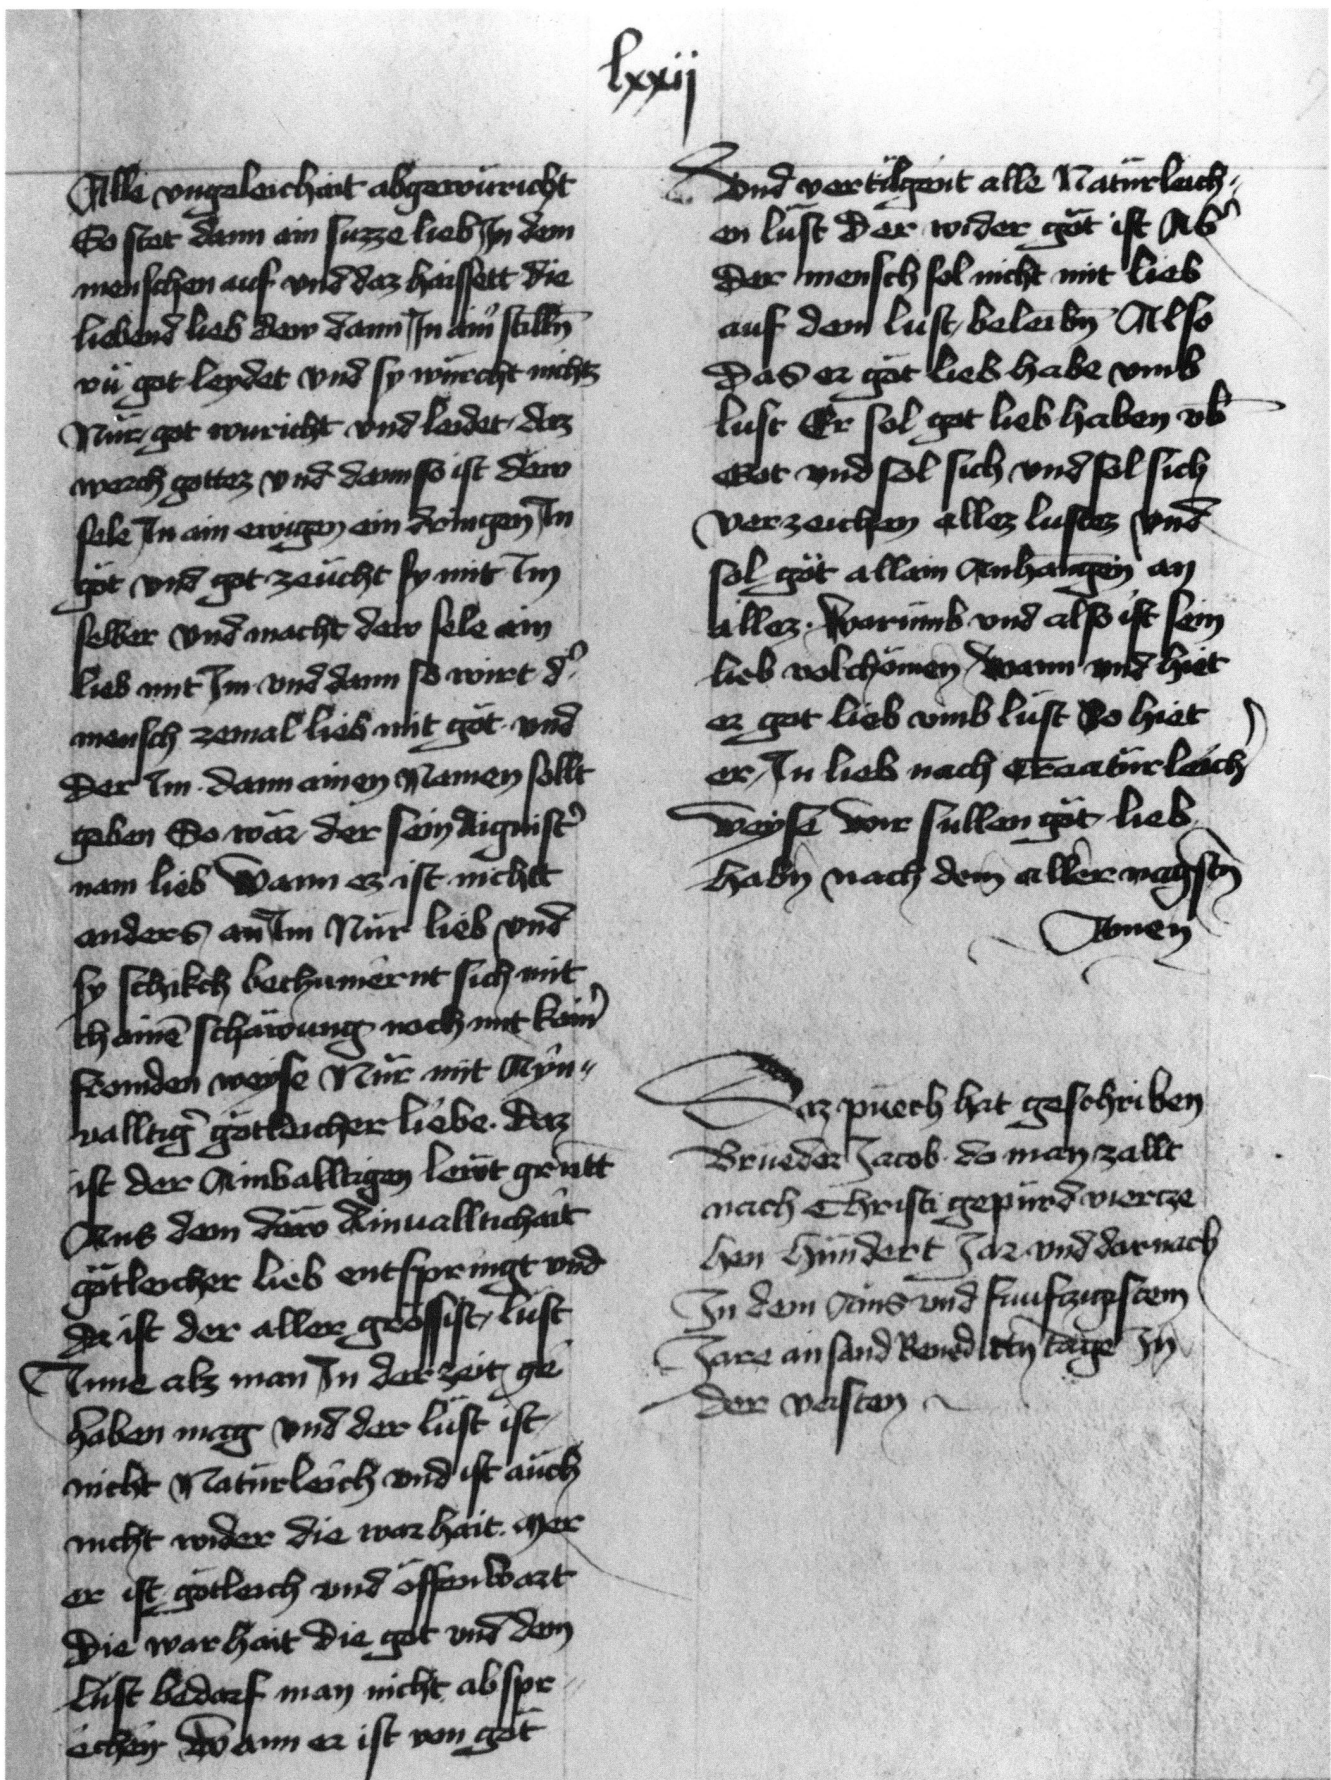 lxxij
Alle vngeleichait abgewüricht
So stet dann ain suzze lieb Jn dem
menschen auf vnd daz haissett die
liebend lieb dew dann Jn aim̄ stilln̄
nü got leydet vnd sy würcht nichtz
Nür got wuricht vnd leidet daz
werch gottez vnd dann so ist dew
sele Jn ain ewigen ein dringen Jn
göt vnd got zeücht sy mit Jm
selber vnd macht dew sele ain
lieb mit Jm vnd dann so wirt d'
mensch zemal lieb mit göt vnd
Der Jm dann ainen Namen sollt
geben So wär der sein Aignist'
nam lieb Wann ez ist nichtt
anders an Jm Nür lieb vnd
sy schikch bechümernt sich mit
chainē schäwung noch mit kain'
fromden weyse Nür mit Ayn〃
valltig' götleicher liebe. Daz
ist der Ainualltigen lewt grūtt
Aus dem däw Ainualltichait
götleicher lieb entspringt vnd
da ist der aller grössist lust
Jnne alz man Jn der zeit ge
haben mag vnd der lüst ist
nicht Natürleich vnd ist auch
nicht wider die warhait. Mer
er ist götleich vnd öffenbart
Die warhait die got vnd dem
lüst bedarf man nicht abspr〃
echen Wann er ist von göt
Vnd vertilgent alle Natürleich〃
en lüst Der wider göt ist Ab'
Der mensch sol nicht mit lieb
auf dem lust beleibn̄ Also
Das er göt lieb habe vmb
lust Er sol got lieb haben vb̄
Got vnd sol sich vnd sol sich
verzeichen allez lustez vnd
sol göt allain Anhangen an
allez. Warumb vnd also ist sein
lieb volchömen Wann vnd hiet
er got lieb vmb lust So hiet
er Jn lieb nach Creatürleich'
weyse Wir süllen göt lieb
habn̄ nach dem aller nagstn̄
Amen
Daz puech hat geschriben
Brueder Jacob do man zallt
nach Christi gepürd viertze
hen Hündert Jar vnd darnach
Jn dem Ains vnd fünfczigistem
Jare an sand Benedictn̄ tage Jn
der vasten